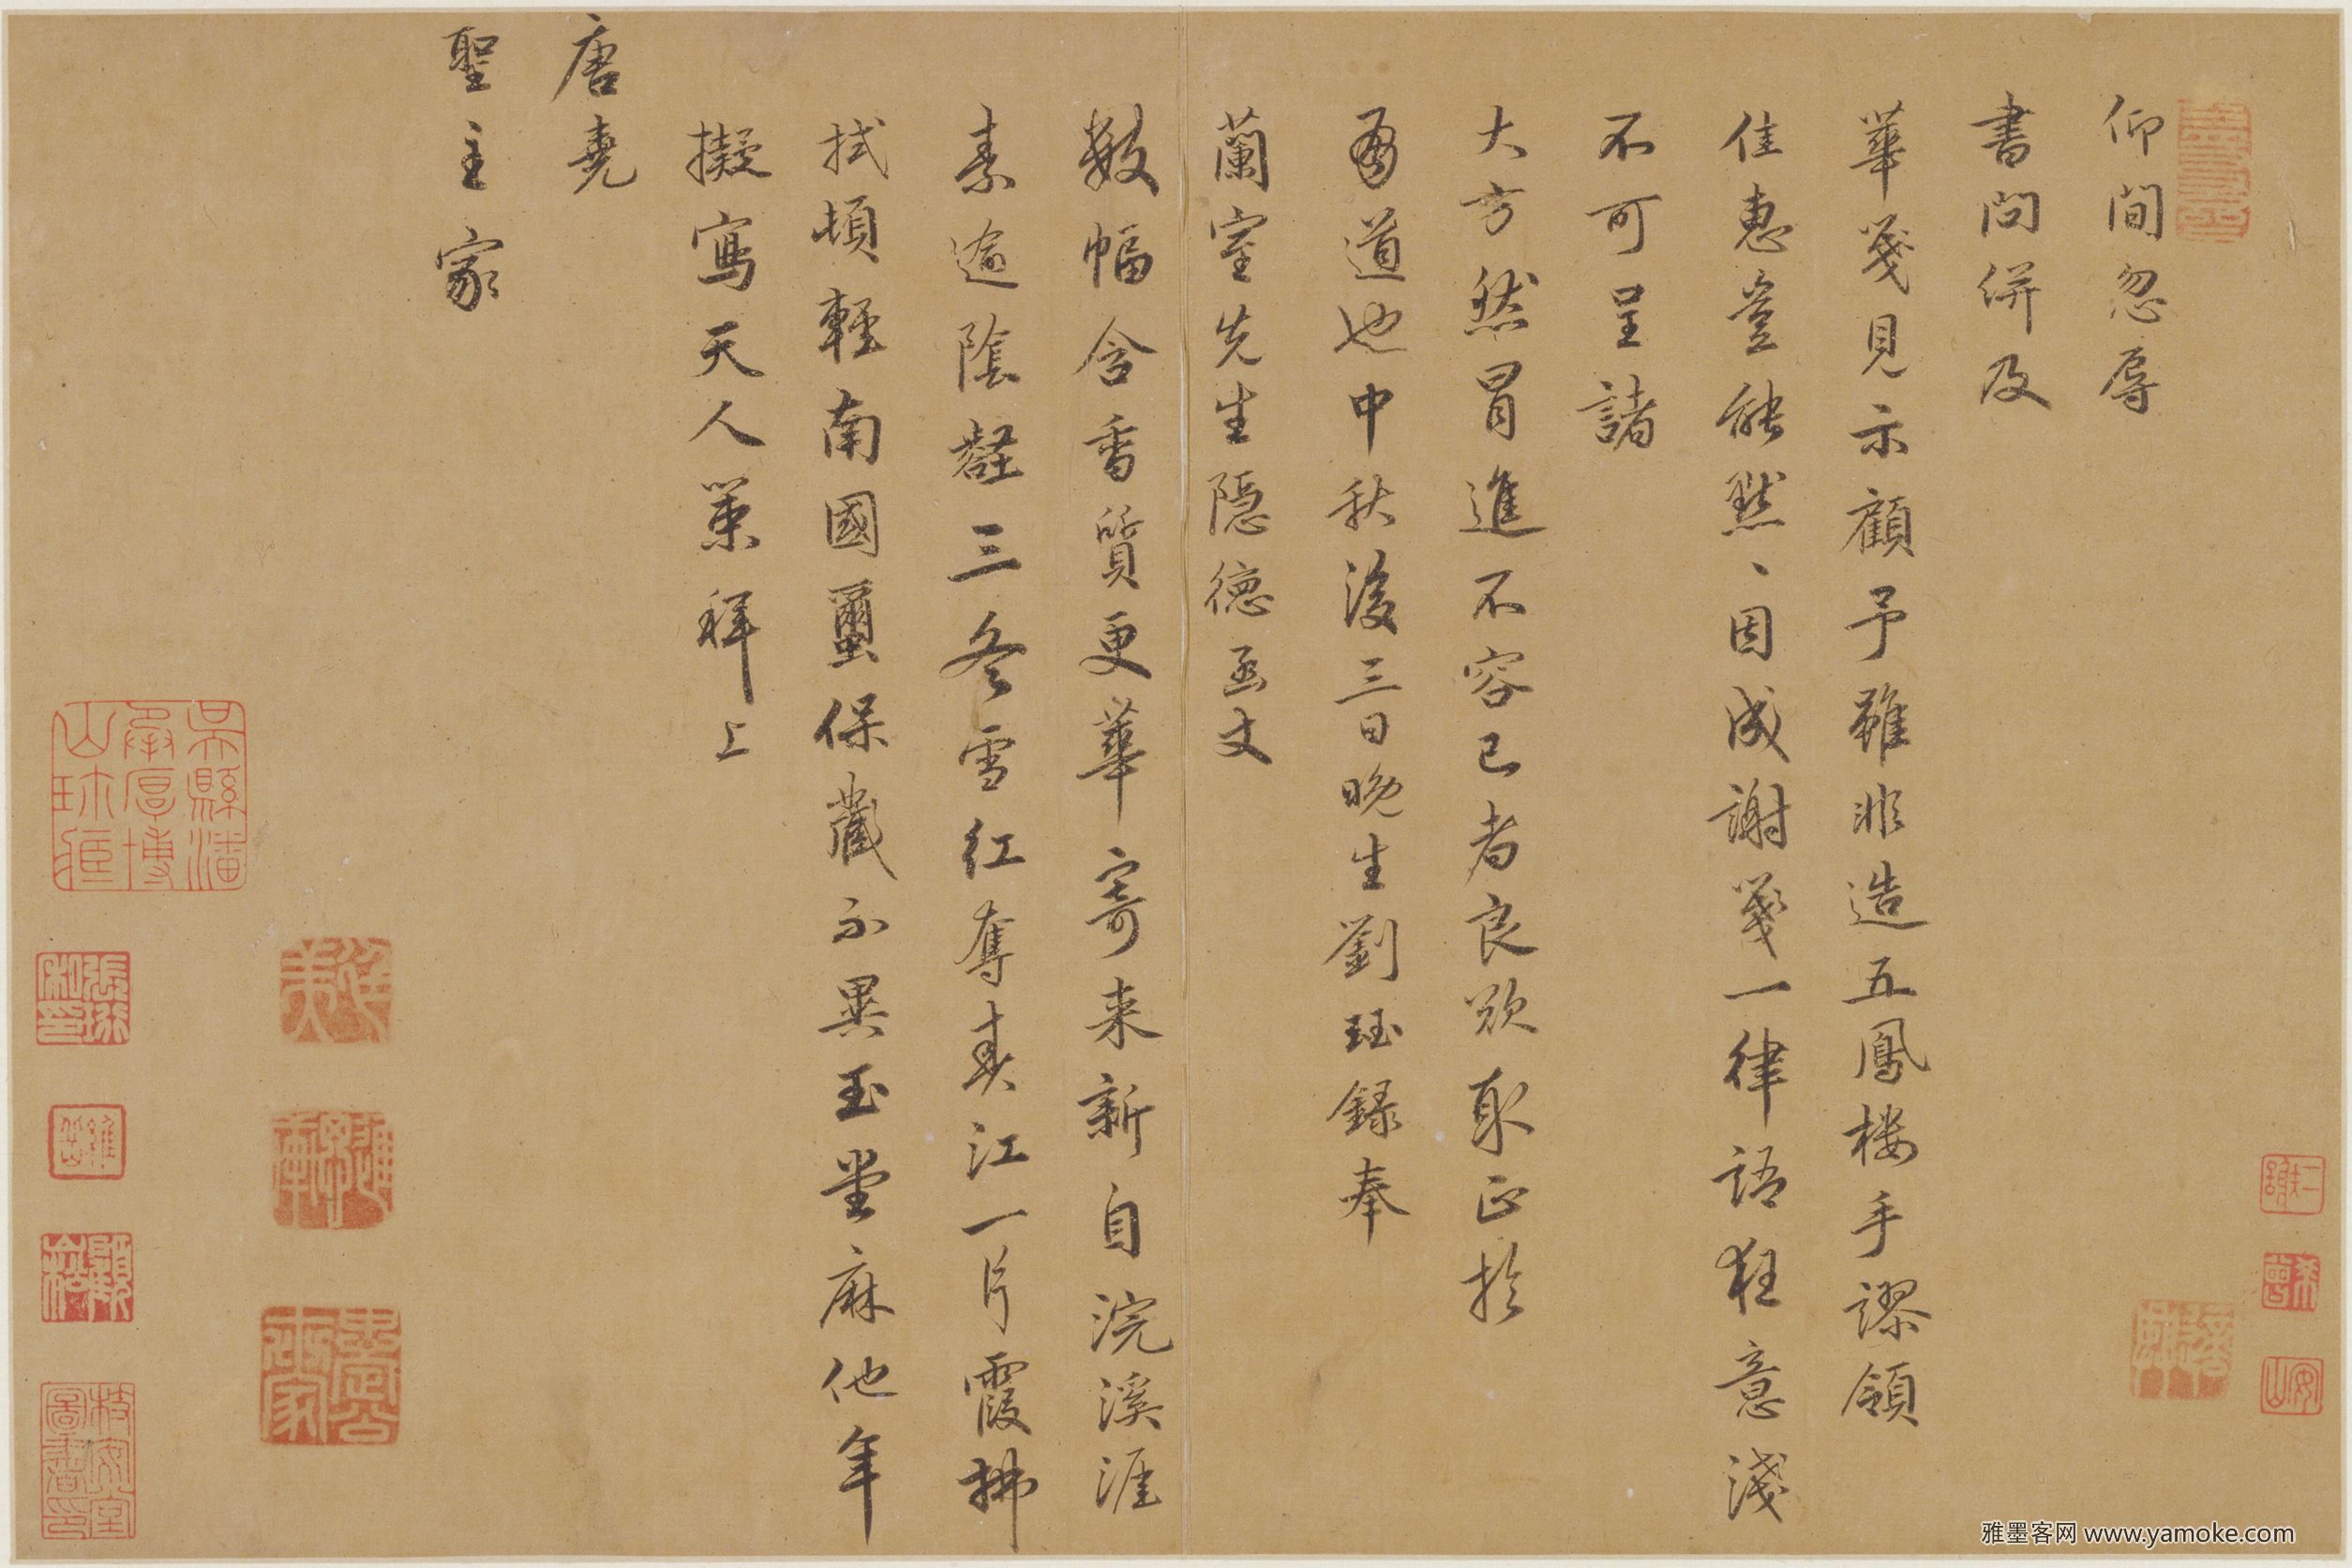 仰間忽辱
書問併及
華箋見示顧予雖非造五鳳樓手謬領
佳惠豈能默、因成謝箋一律語狂意淺
不可呈諸
大方然冒進不容已者良欲取正於
有道也中秋後三日晚生劉珏錄奉
蘭室先生隱德函丈
數幅含香質更華寄來新自浣溪涯
素逾陰壑三冬雪紅奪春江一片霞拂
拭頓輕南國璽保藏不異玉堂麻他年
擬寫天人策拜上
唐堯
聖主家
吳縣潘
承厚博
山珍藏
雅墨客网 www.yamoke.com